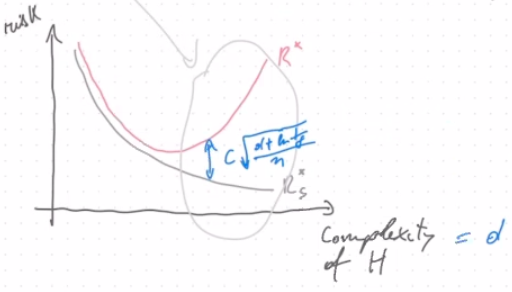 risk
R*
C √((d + ln 1/δ)/n)
R*ₛ
Complexity = d
of H